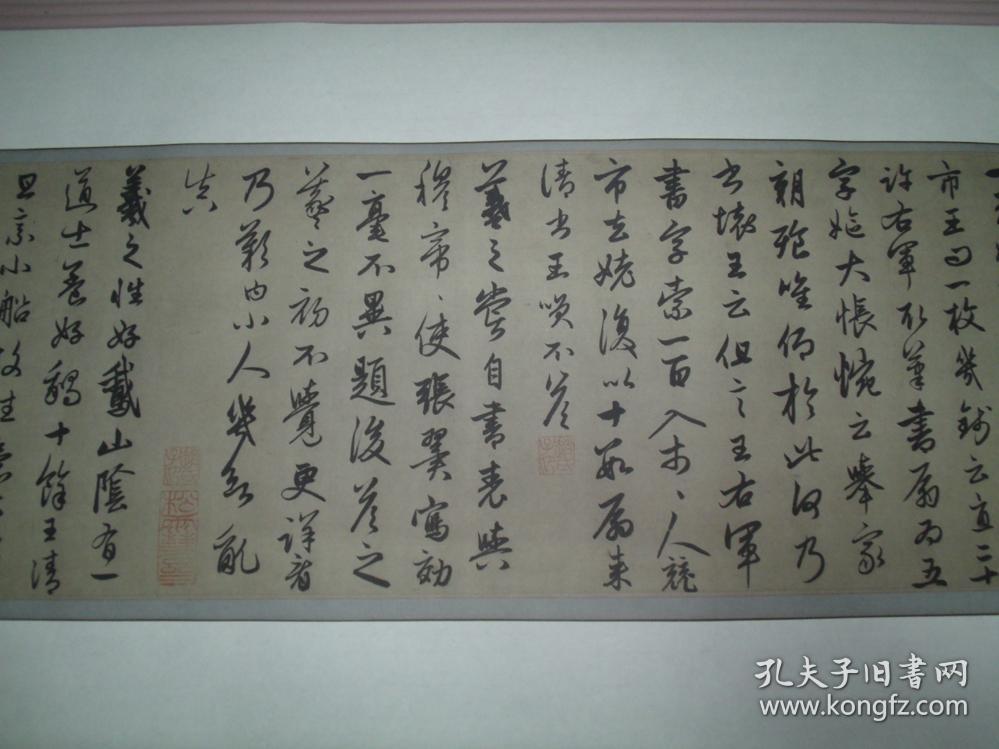 市王問一枚幾錢云直二十
許右軍取筆書扇為五
字嫗大悵惋云舉家
朝飡唯仰於此何乃
書壞王云但言王右軍
書字索一百入市、人競
市去嬈復以十數扇來
請書王哂不答
羲之嘗自書表與
穆帝、使張翼寫効
一毫不異題後答之
羲之初不覺更詳看
乃歎曰小人幾欲亂
真
羲之性好鵞山陰有一
道士養好鵞十餘王清
旦乘小船故往
孔夫子旧书网
www.kongfz.com